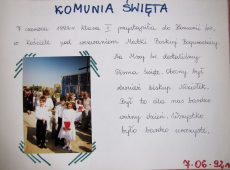 KOMUNIA ŚWIĘTA
7 czerwca 1992r. klasa I przystąpiła do Komunii św.
w Kościele pod wezwaniem Matki Boskiej
Na Mszy św. dostaliśmy
Pisma Święte. Obecny był
również biskup
Był to dla nas bardzo
ważny dzień. Wszystko
było bardzo uroczyste.
7.06.92r.